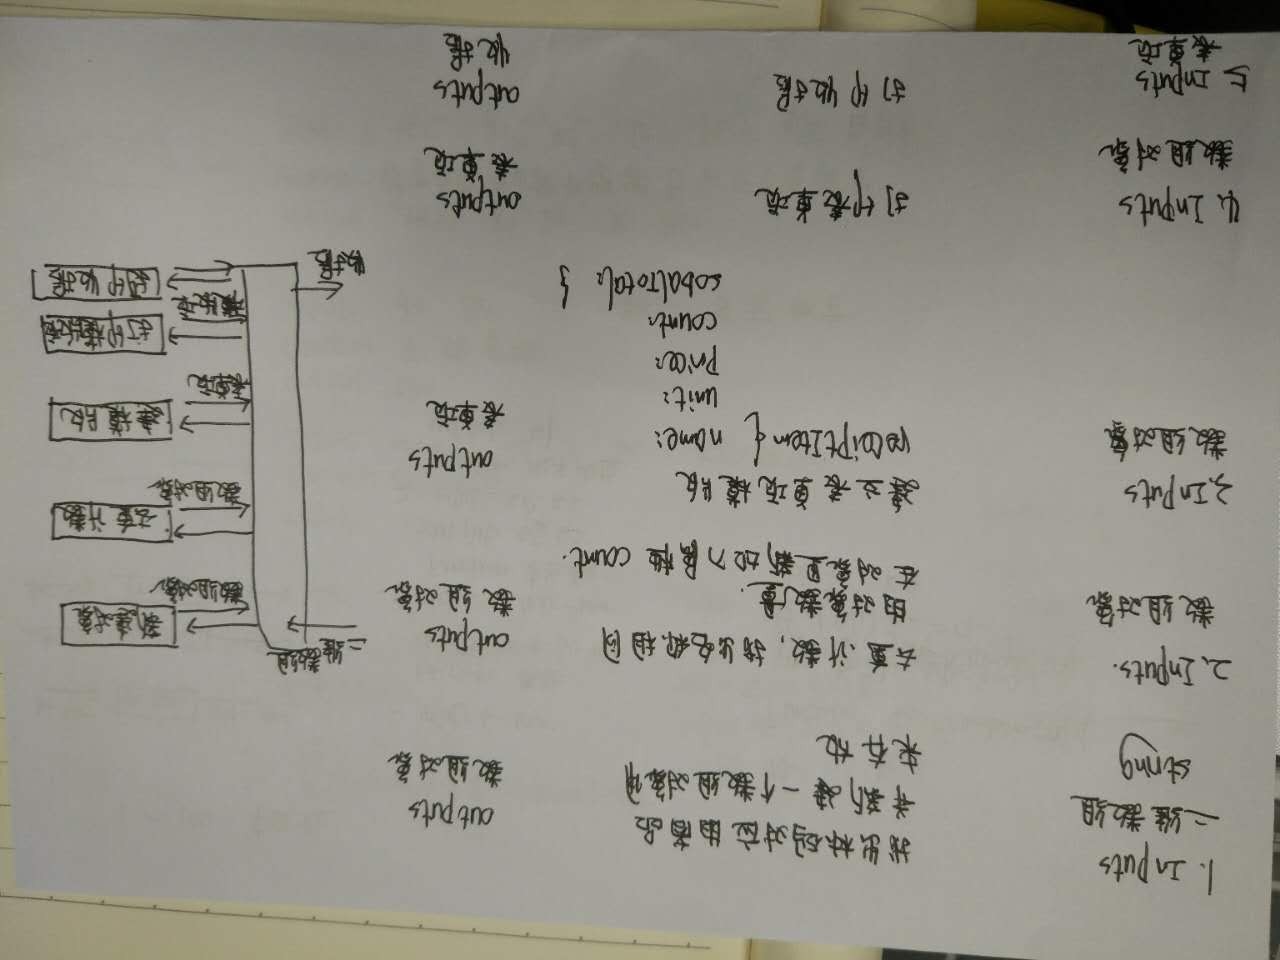 1. Inputs
二维数组
string
找出条码对应的商品
并新建一个数组对象用
来存放
outputs
数组对象
2. Inputs.
数组对象
去重、计数，找出名称相同
的对象数量.
在对象里新加入属性 count.
outputs
数组对象
3. Inputs
数组对象
建立表单项模版
receiptItem { name:
unit:
price:
count:
}
outputs
表单项
4. Inputs
数组对象
打印表单项
outputs
表单项
5 Inputs
表单项
打印收据
outputs
收据
二维
数组
新建对象
数组对象
去重计数
数组对象
建模版
表单项
打印收据
收据